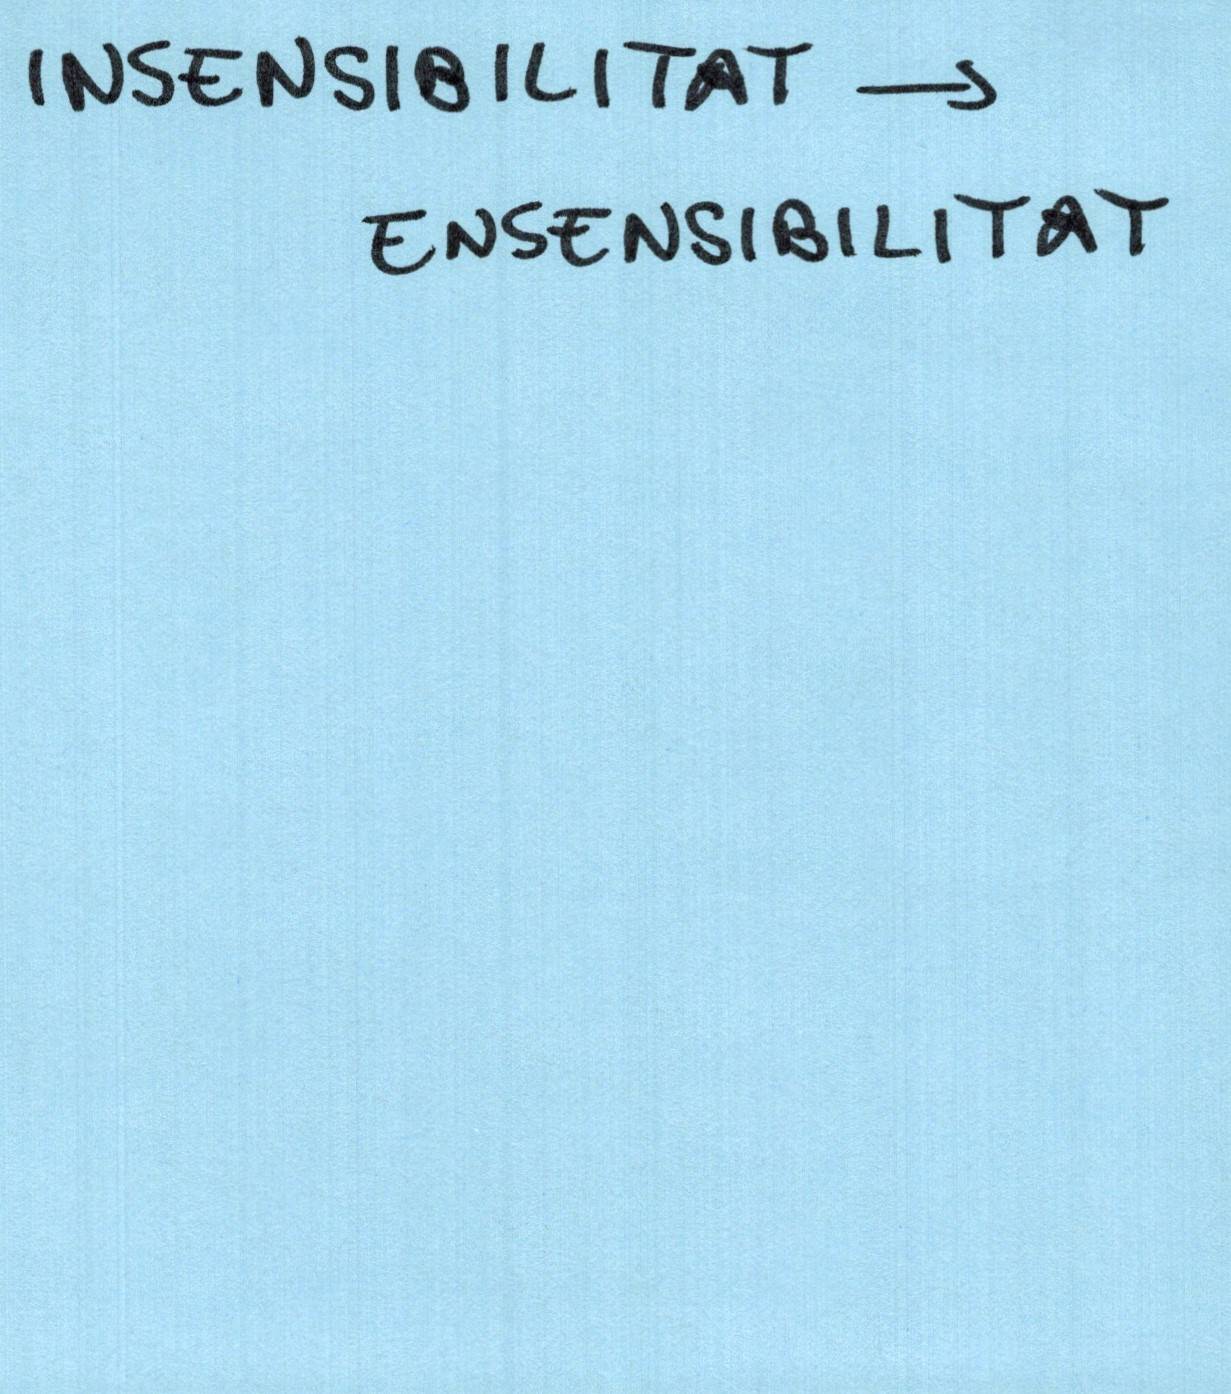 INSENSIBILITAT →
ENSENSIBILITAT